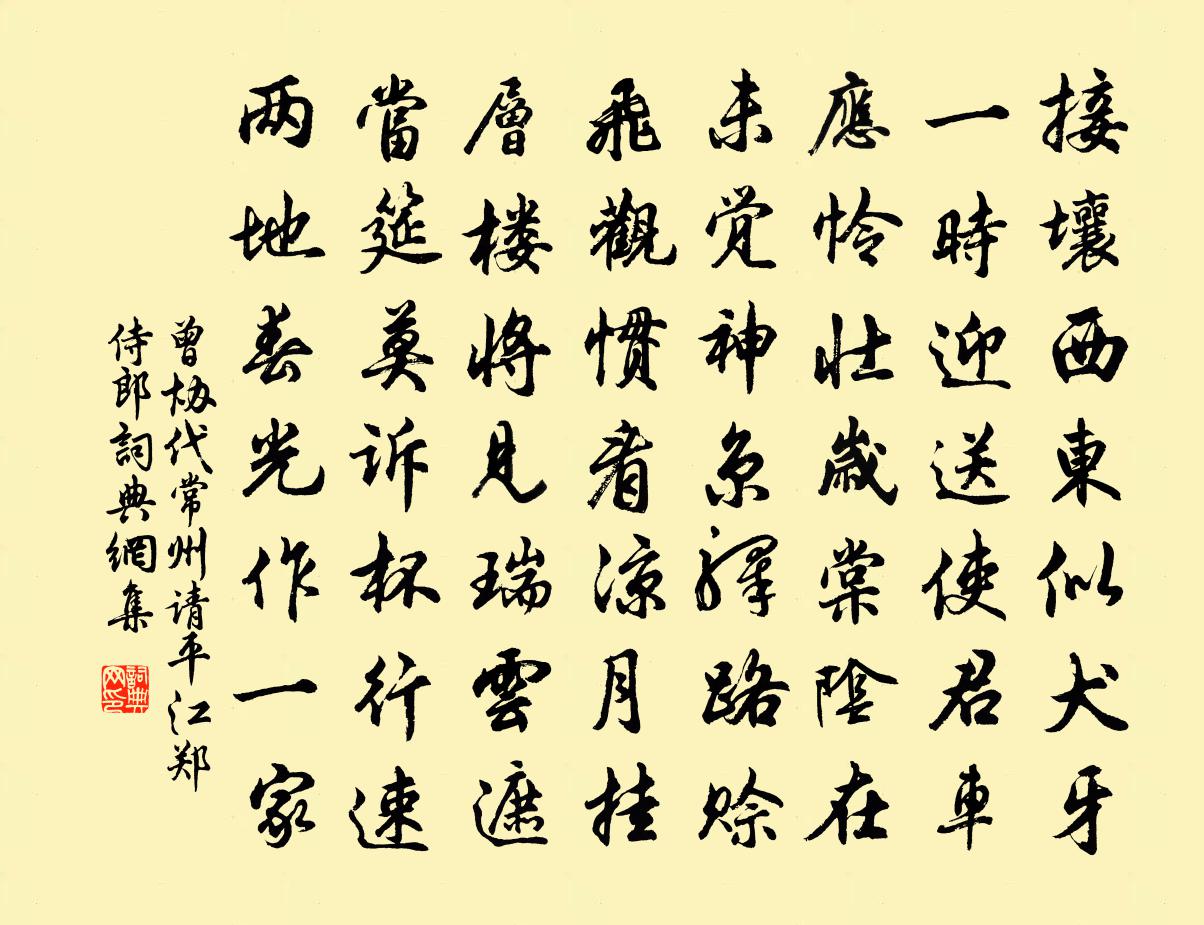 接壤西東似犬牙
一時迎送使君車
應怜壯歲棠陰在
未覺神京驛路賒
飛觀慣看涼月挂
層楼將見瑞雲遮
當筵莫訴杯行速
两地春光作一家
曾协代常州请平江郑
侍郎詞典網集
詞典网印